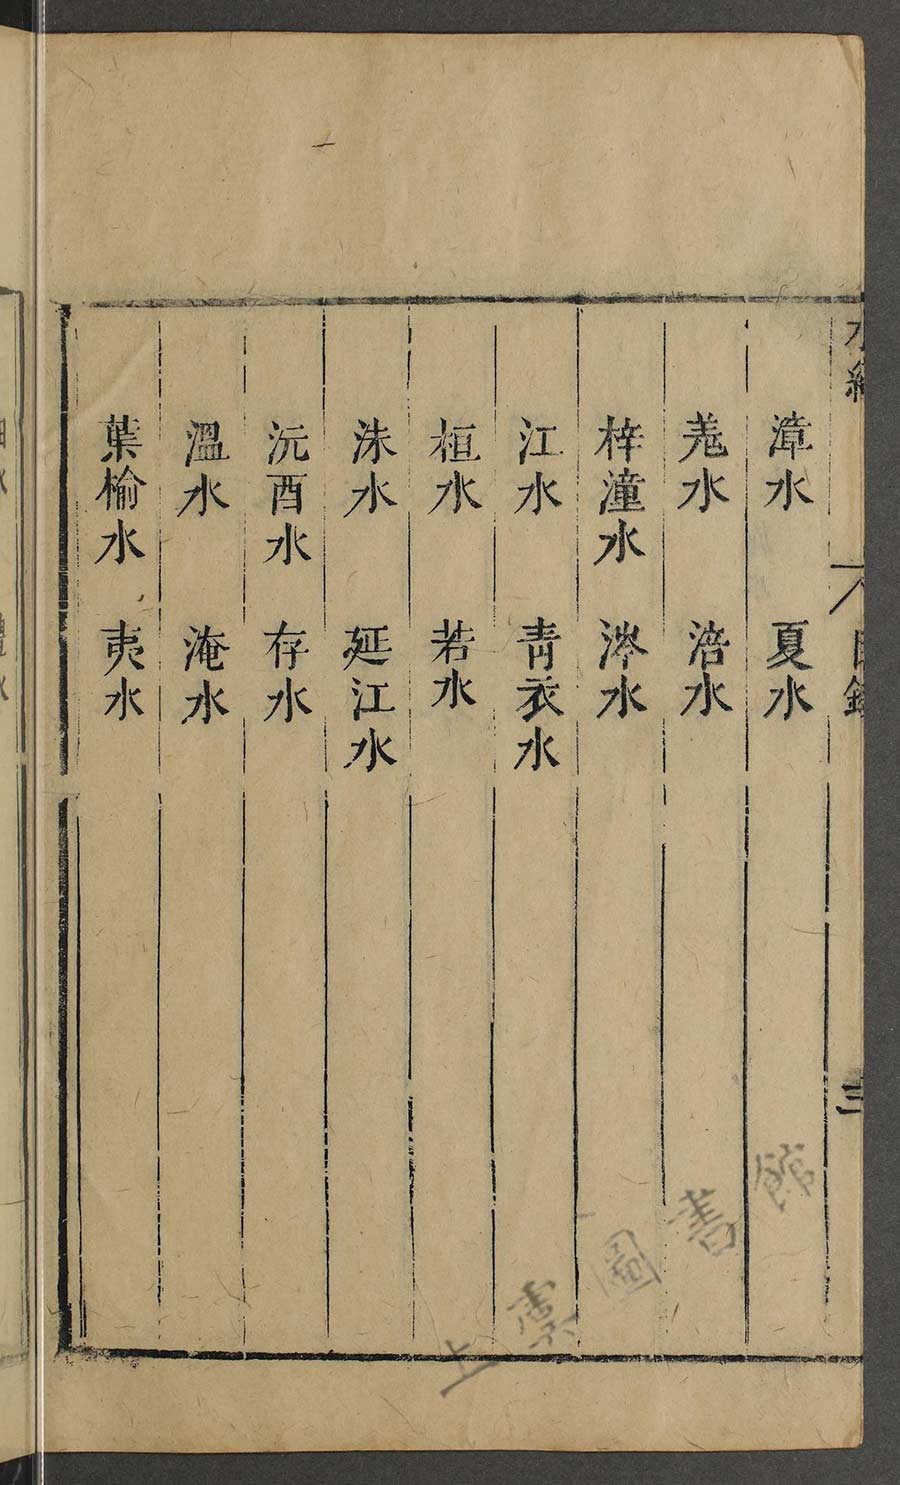 水經
目錄
三
漳水 夏水
羌水 涪水
梓潼水 涔水
江水 青衣水
桓水 若水
沫水 延江水
沅酉水 存水
溫水 淹水
葉榆水 夷水
上虞圖書館